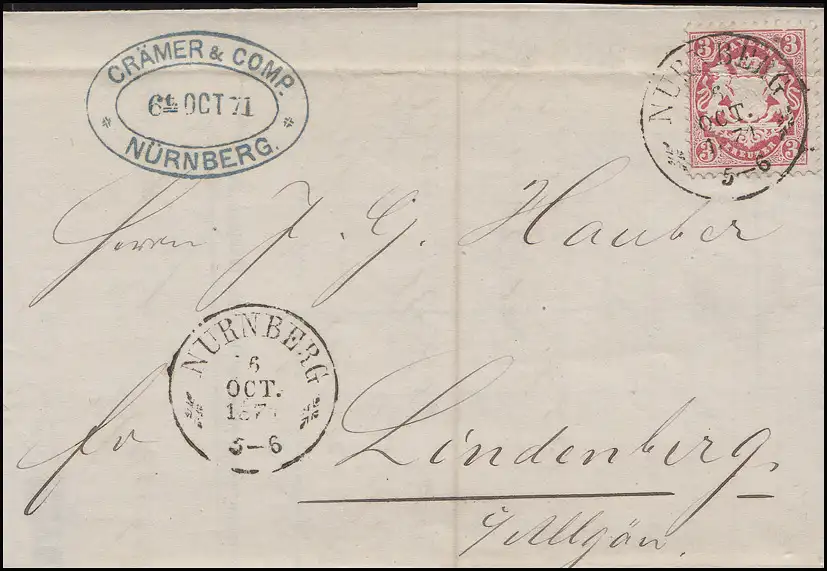 CRÄMER & COMP.
6t OCT 71
NÜRNBERG.
3 3
NÜRNBERG
6
OCT.
5-6
3 KREUZER 3
Herrn J. G. Hauber
NÜRNBERG
6
OCT.
187
5-6
Lindenberg
i/Allgäu.